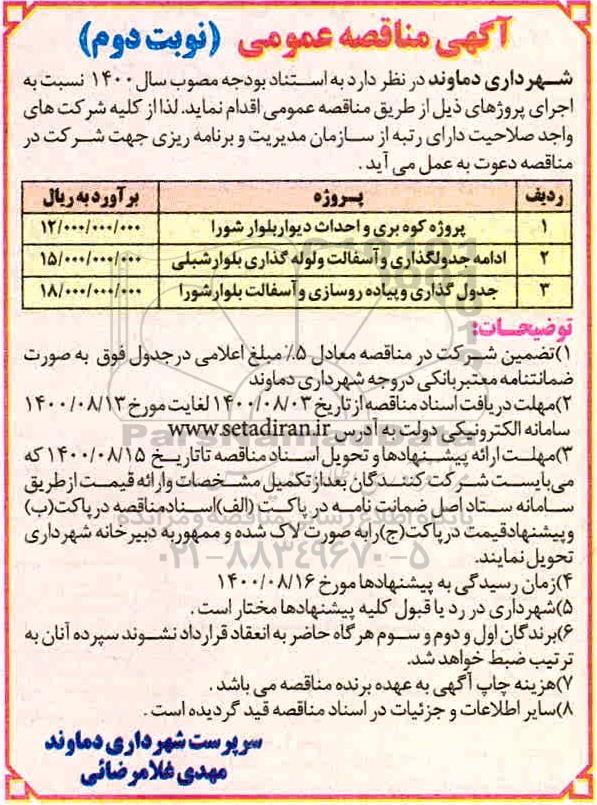 آگهی مناقصه عمومی (نوبت دوم)
شهرداری دماوند در نظر دارد به استناد بودجه مصوب سال ۱۴۰۰ نسبت به
اجرای پروژهای ذیل از طریق مناقصه عمومی اقدام نماید. لذا از کلیه شرکت های
واجد صلاحیت دارای رتبه از سازمان مدیریت و برنامه ریزی جهت شرکت در
مناقصه دعوت به عمل می آید.
ردیف پروژه برآورد به ریال
۱ پروژه کوه بری و احداث دیوار بلوار شورا ۱۲/۰۰۰/۰۰۰/۰۰۰
۲ ادامه جدولگذاری و آسفالت ولوله گذاری بلوار شبلی ۱۵/۰۰۰/۰۰۰/۰۰۰
۳ جدول گذاری و پیاده روسازی و آسفالت بلوار شورا ۱۸/۰۰۰/۰۰۰/۰۰۰
توضیحات:
۱)تضمین شرکت در مناقصه معادل ۵٪ مبلغ اعلامی در جدول فوق به صورت
ضمانتنامه معتبر بانکی در وجه شهرداری دماوند
۲)مهلت دریافت اسناد مناقصه از تاریخ ۱۴۰۰/۰۸/۰۳ لغایت مورخ ۱۴۰۰/۰۸/۱۳
سامانه الکترونیکی دولت به آدرس www.setadiran.ir
۳)مهلت ارائه پیشنهادها و تحویل اسناد مناقصه تا تاریخ ۱۴۰۰/۰۸/۱۵ که
می بایست شرکت کنندگان بعد از تکمیل مشخصات و ارائه قیمت از طریق
سامانه ستاد اصل ضمانت نامه در پاکت (الف) اسناد مناقصه در پاکت(ب)
و پیشنهاد قیمت در پاکت(ج) را به صورت لاک شده و ممهور به دبیرخانه شهرداری
تحویل نمایند.
۴)زمان رسیدگی به پیشنهادها مورخ ۱۴۰۰/۰۸/۱۶
۵)شهرداری در رد یا قبول کلیه پیشنهادها مختار است.
۶)برندگان اول و دوم و سوم هرگاه حاضر به انعقاد قرارداد نشوند سپرده آنان به
ترتیب ضبط خواهد شد.
۷)هزینه چاپ آگهی به عهده برنده مناقصه می باشد.
۸)سایر اطلاعات و جزئیات در اسناد مناقصه قید گردیده است.
سرپرست شهرداری دماوند
مهدی غلامرضائی
ParsNamadData
پایگاه اطلاع رسانی مناقصه و مزایده
۰۲۱-۸۸۳۴۹۶۷۰-۵